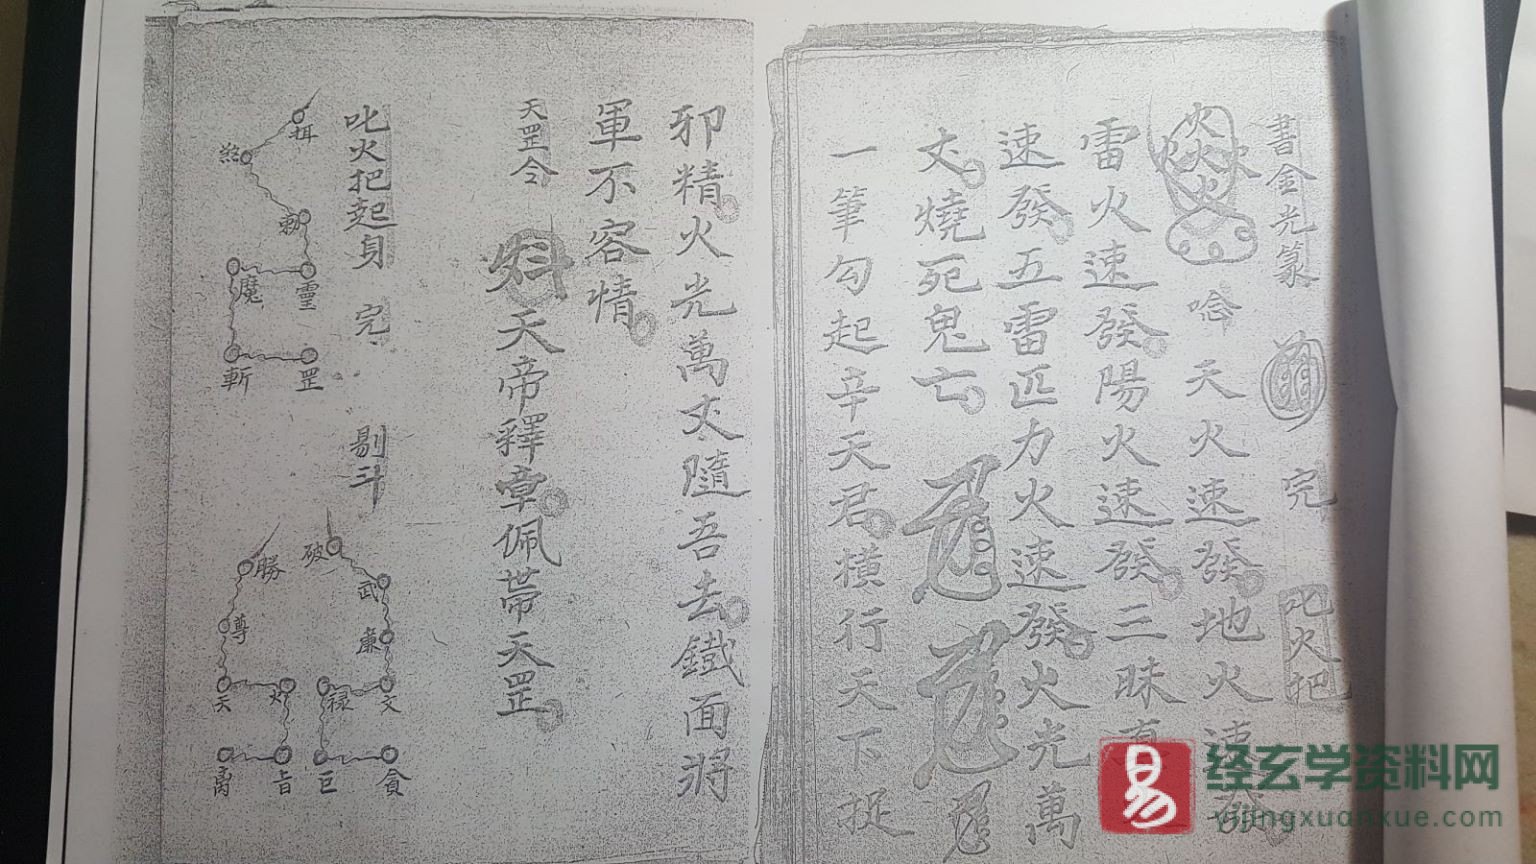 書金光篆 完 叱火把
唸天火速發地火速發
雷火速發陽火速發三昧真
速發五雷匹力火速發火光萬
丈燒死鬼亡
一筆勾起辛天君橫行天下捉
邪精火光萬丈隨吾去鐵面將
軍不容情
天罡令
天帝釋章佩帶天罡
叱火把起身 完 剔斗
魔
靈
斬
罡
破
武
廉
文
祿
巨
貪
勝
尊
天
易
经玄学资料网
yijingxuanxue.com